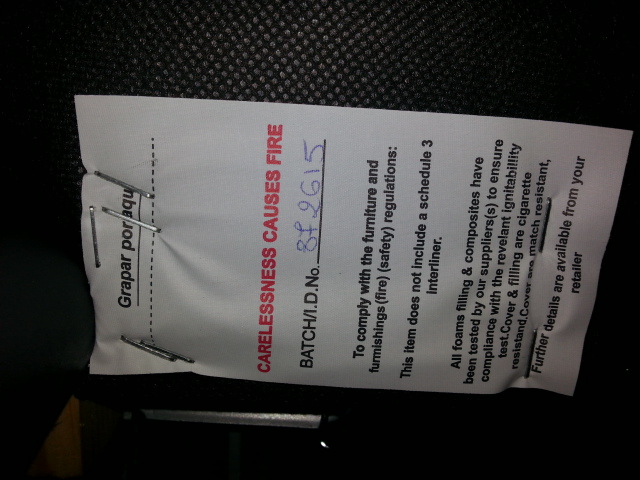 Grapar por aqui
CARELESSNESS CAUSES FIRE
BATCH/I.D.No. 8F2615
To comply with the furniture and
furmishings (fire) (safety) regulations:
This item does not include a schedule 3
interliner.
All foams filling & composites have
been tested by our suppliers(s) to ensure
compliance with the revelant ignitabillity
test.Cover & filling are cigarette
resistand,Cover are match resistant,
Further details are available from your
retailer